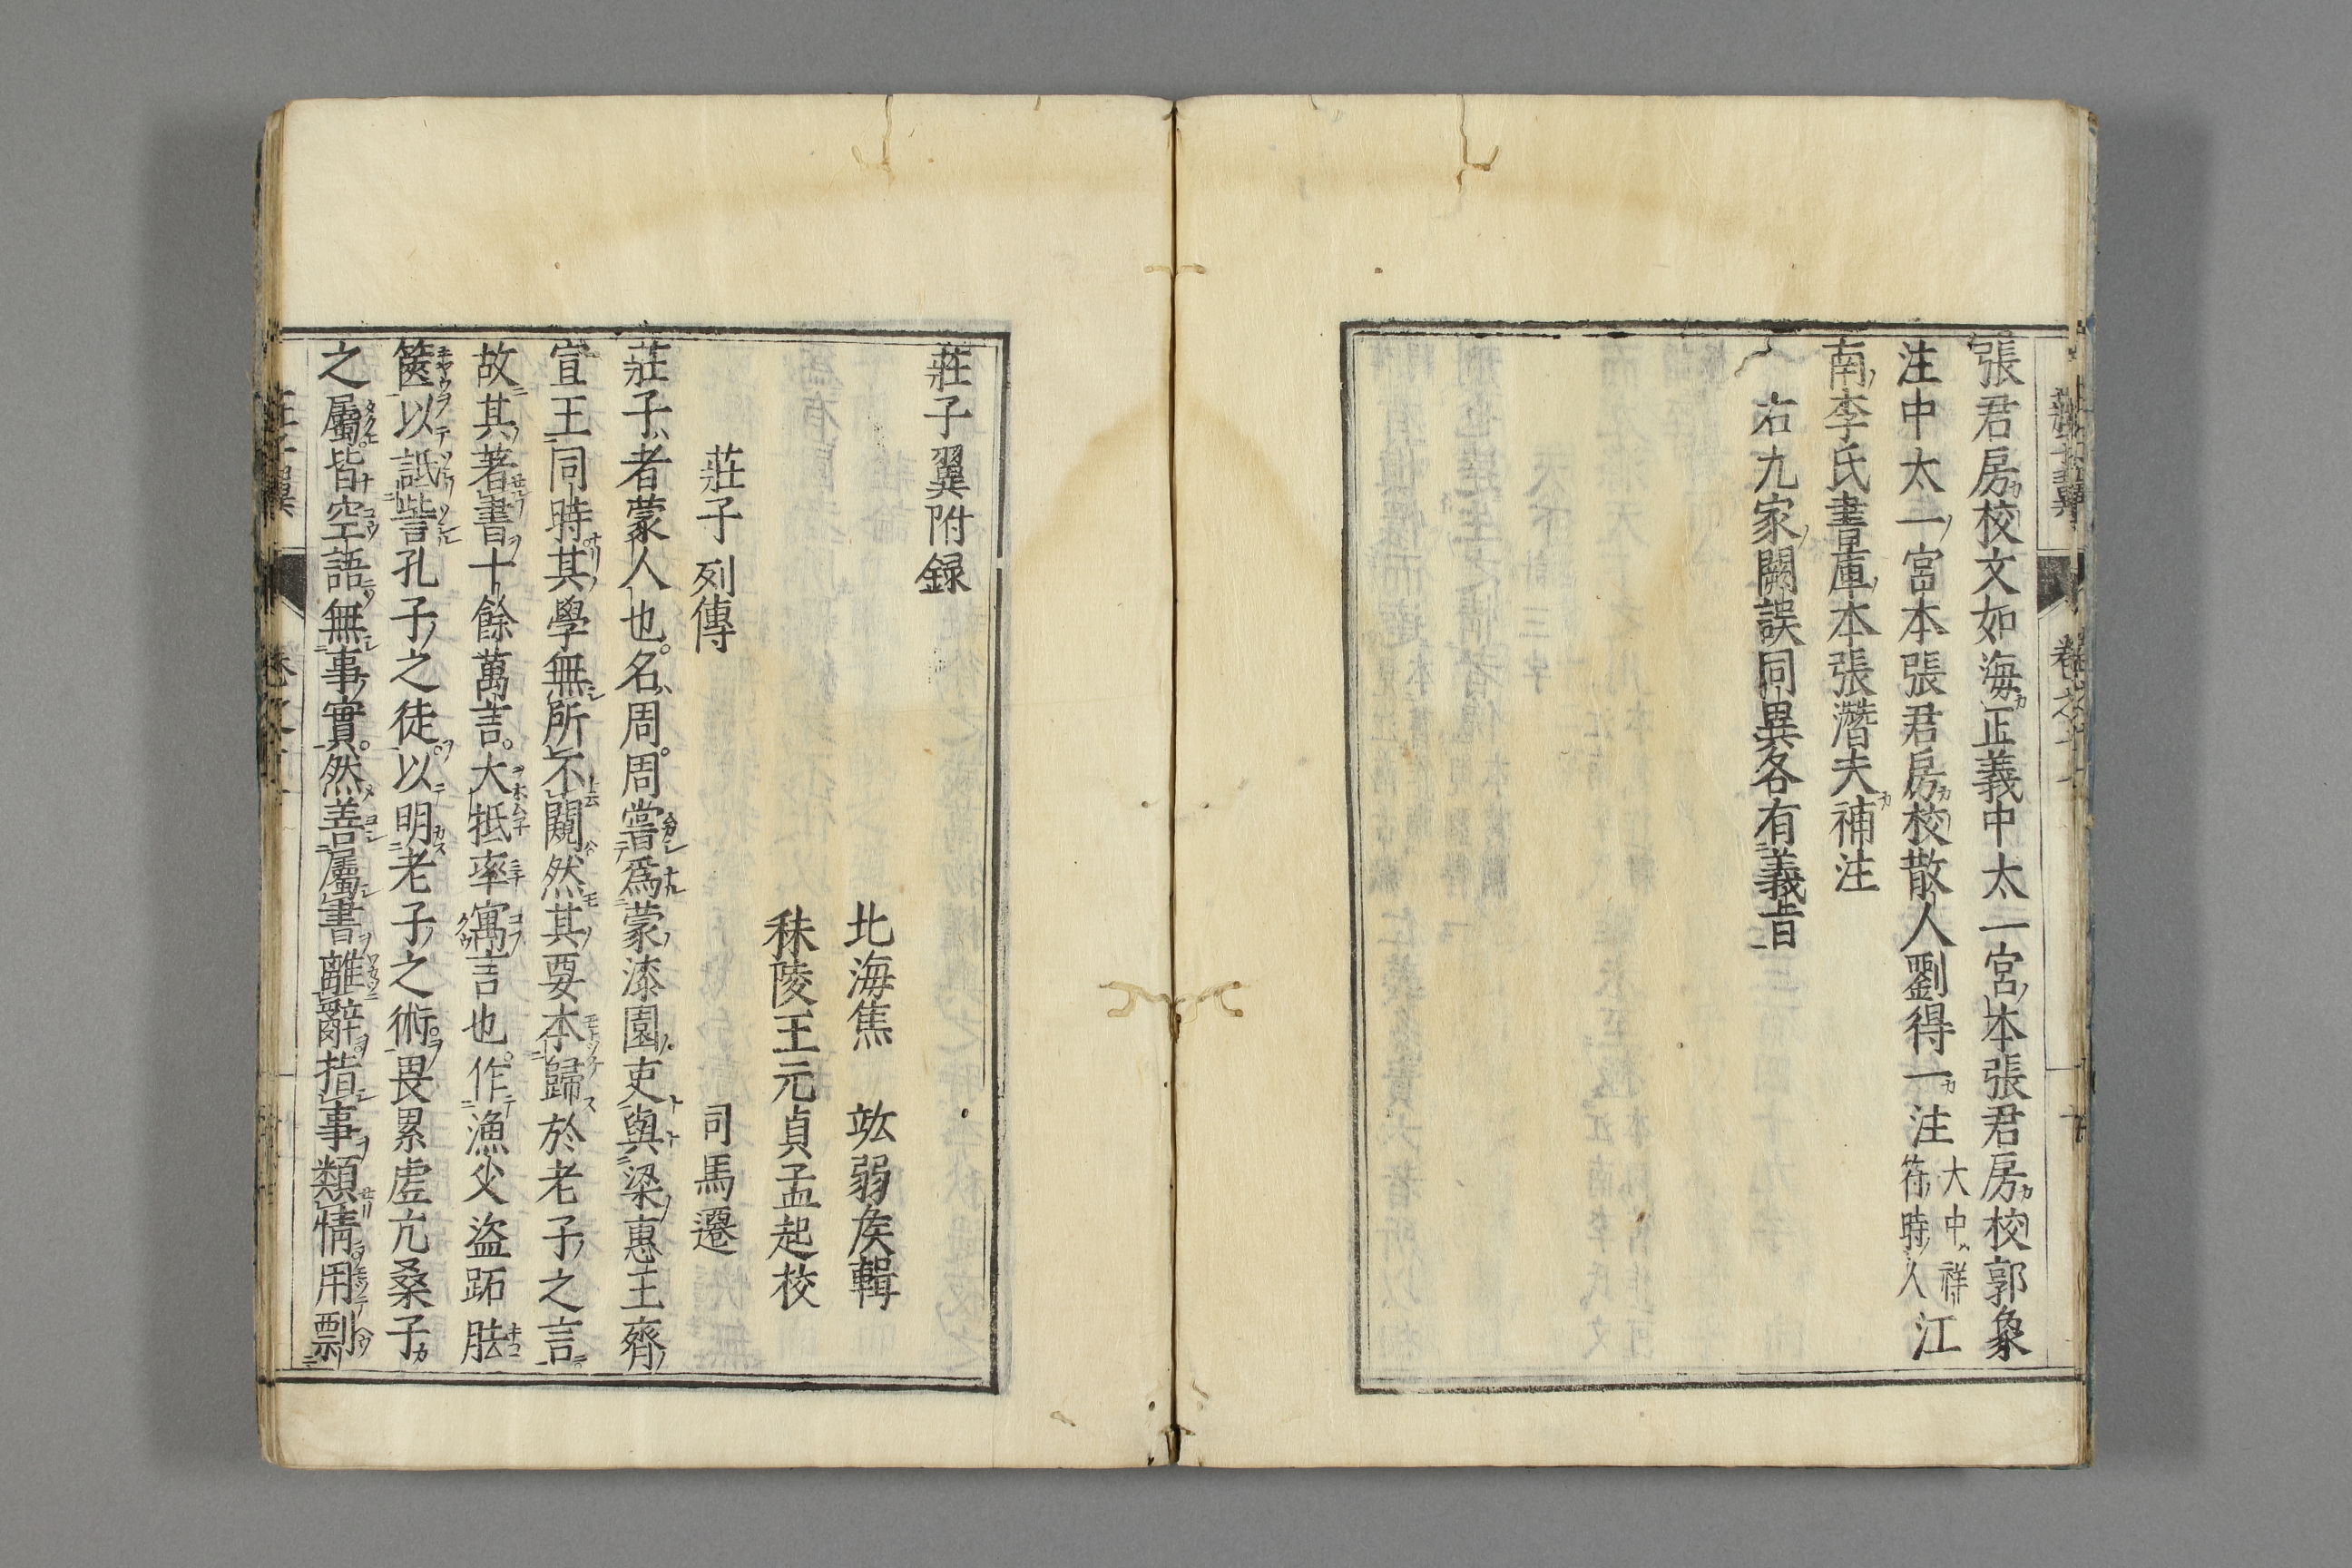 張君房校文如海正義中太一宮本張君房校郭象
注中太一宮本張君房校散人劉得一注大中祥符時人江
南李氏書庫本張潛夫補注
右九家闕誤同異各有義旨
莊子翼附録
北海焦竑弱矦輯
秣陵王元貞孟起校
莊子列傳 司馬遷
莊子者蒙人也名周周嘗爲蒙漆園吏與梁惠王齊
宣王同時其學無所不闚然其要本歸於老子之言
故其著書十餘萬言大抵率寓言也作漁父盜跖胠
篋以詆訾孔子之徒以明老子之術畏累虛亢桑子
之屬皆空語無事實然善屬書離辭指事類情用剽